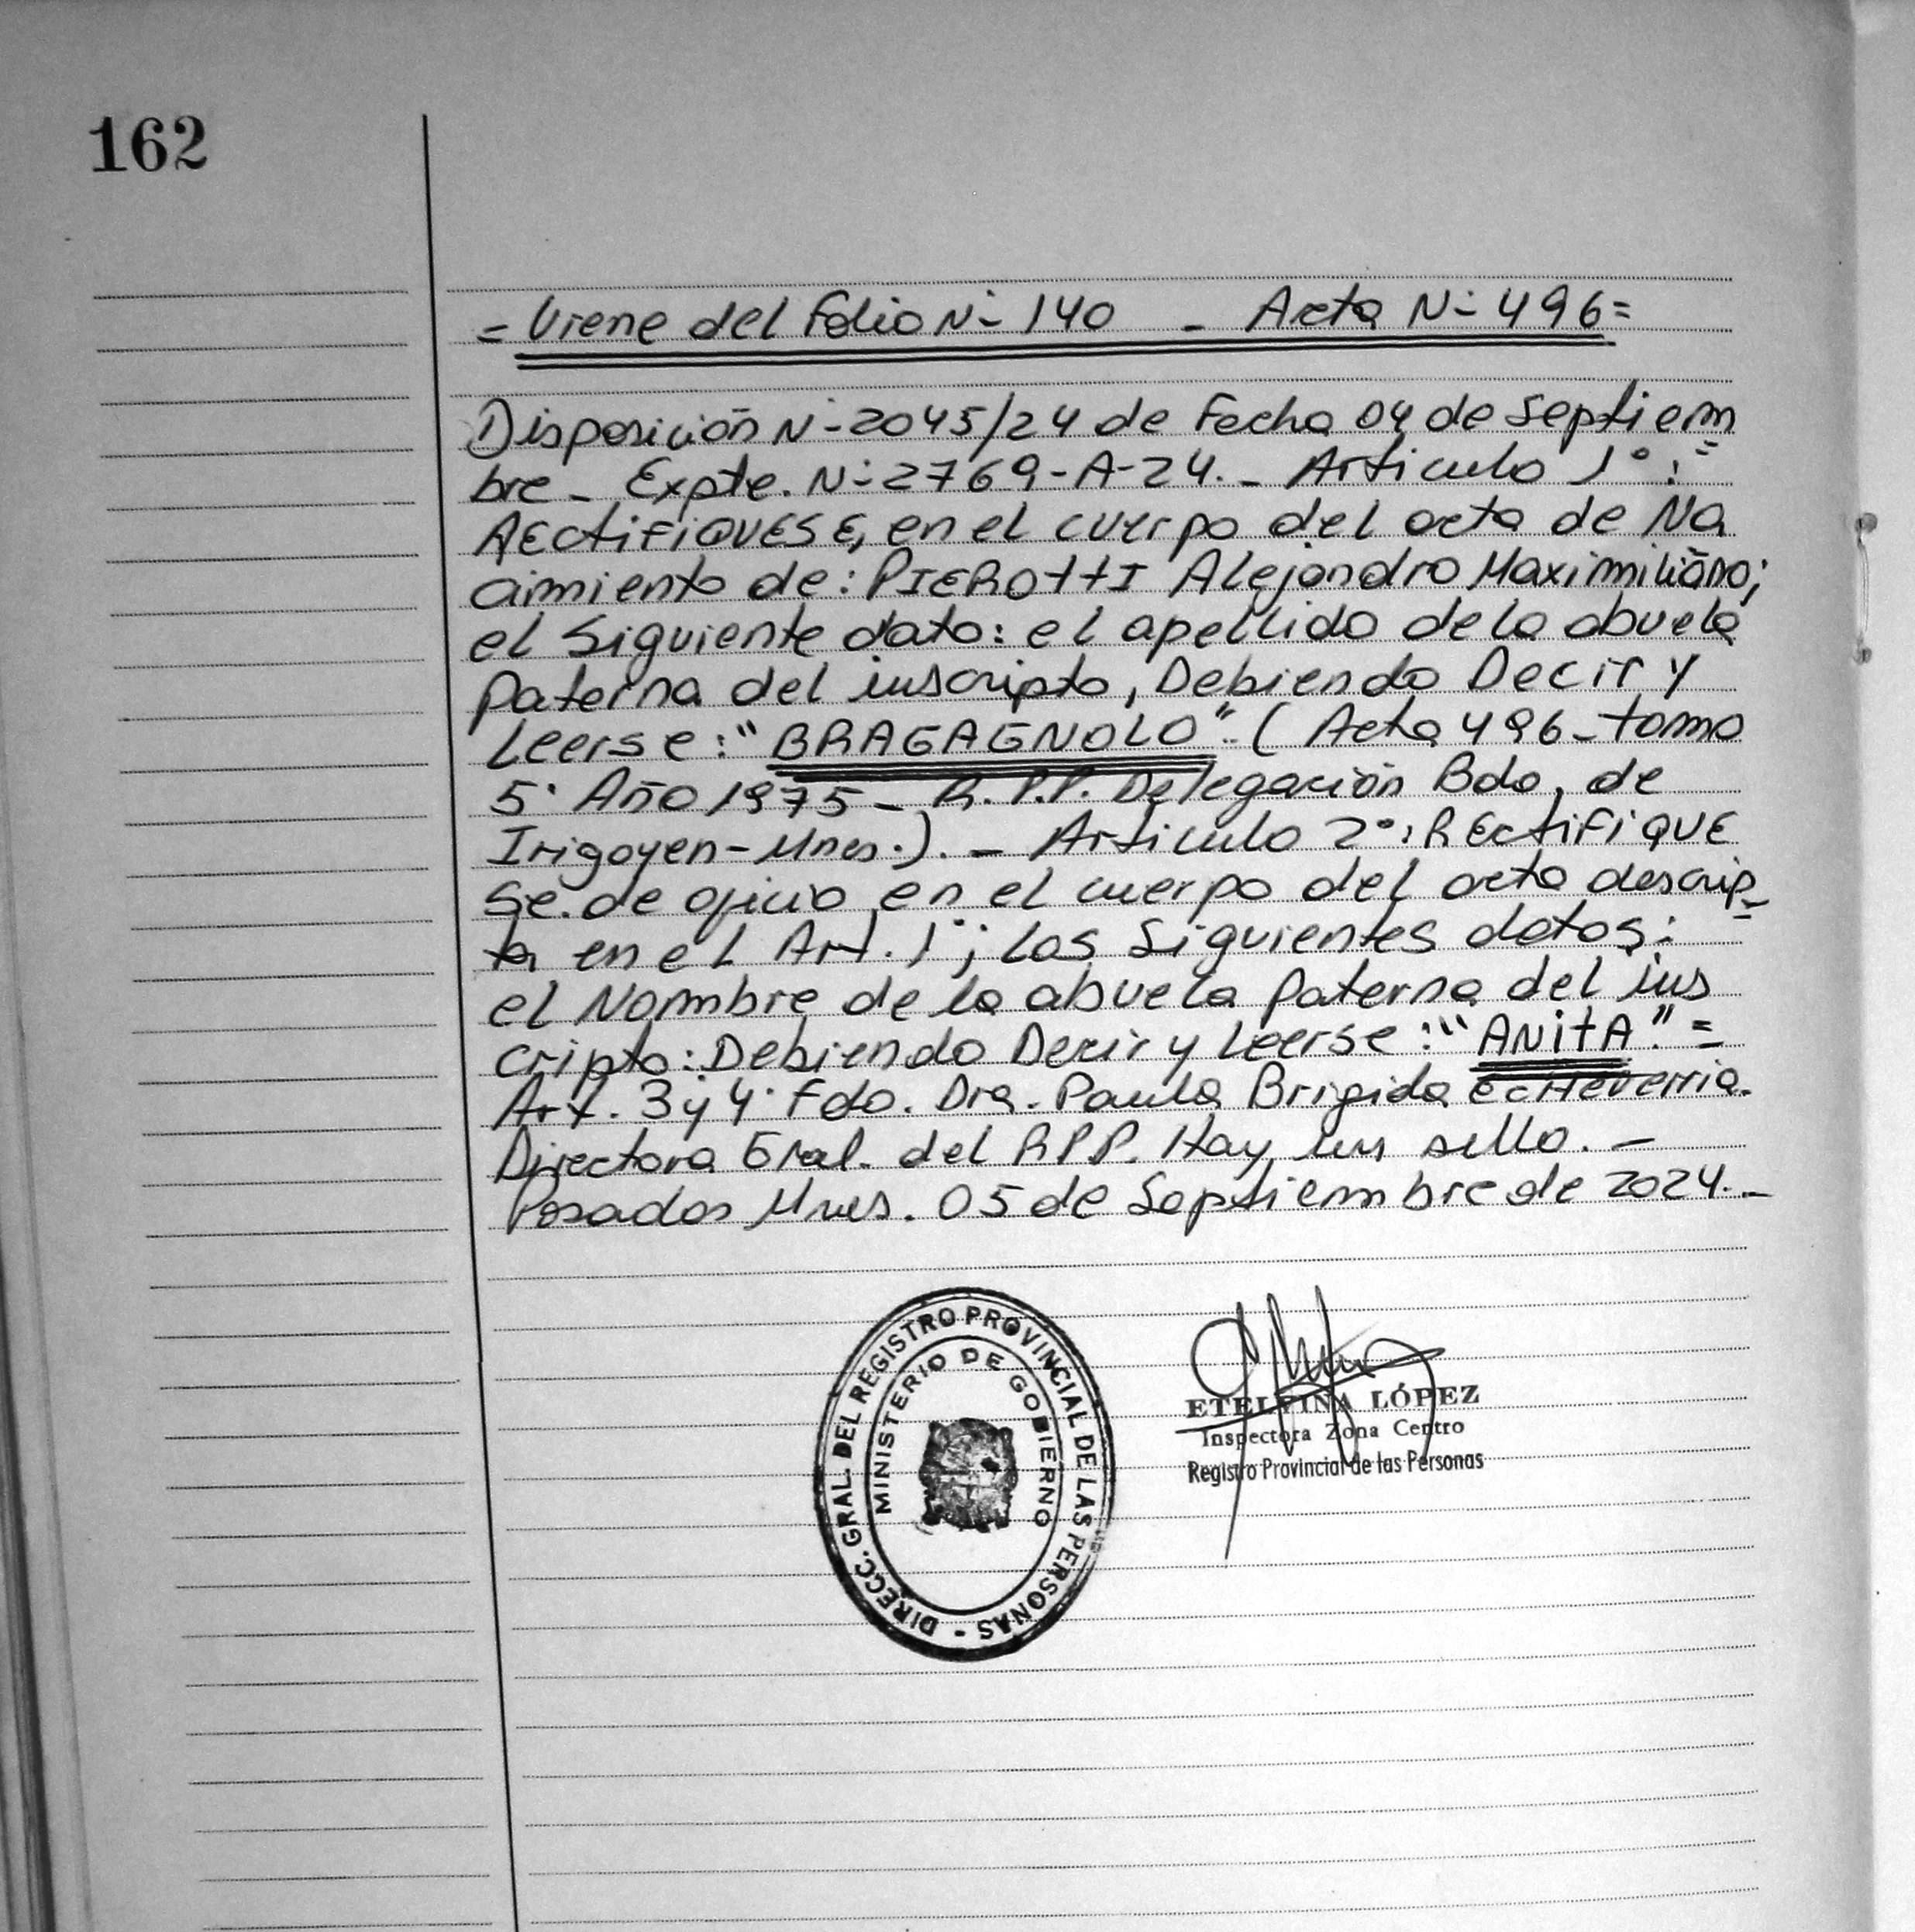 162
= Viene del Folio N- 140 - Acta N- 496=
Disposición N-2045/24 de Fecha 04 de Septiem
bre - Expte. N-2769-A-24.- Articulo 1°:=
RECtiFiQUESE, en el cuerpo del acta de Na
cimiento de: PIEROttI Alejandro Maximiliano;
el Siguiente dato: el apellido de la abuela
Paterna del inscripto, Debiendo Decir y
Leerse: "BRAGAGNOLO". (Acta 496-tomo
5° Año 1975 - R.P.P. Delegación Bdo. de
Irigoyen-Mnes.).- Articulo 2°: RECtiFiQUE
Se. de oficio en el cuerpo del acta descrip-
ta en el Art. 1°; los Siguientes datos:
el Nombre de la abuela Paterna del ins
cripto: Debiendo Decir y Leerse: "ANitA." =
Art. 3 y 4° Fdo. Dra. Paula Brigida ECHEverria.
Directora Gral. del R.P.P. Hay un sello. -
Posadas Mnes. 05 de Septiembre de 2024.-
DIRECC. GRAL. DEL REGISTRO PROVINCIAL DE LAS PERSONAS -
MINISTERIO DE GOBIERNO
ETELVINA LÓPEZ
Inspectora Zona Centro
Registro Provincial de las Personas